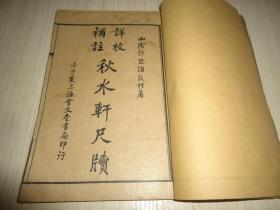 山陰許葭邨著
詳校
補註
秋水軒尺牘
上海會文堂書局印行